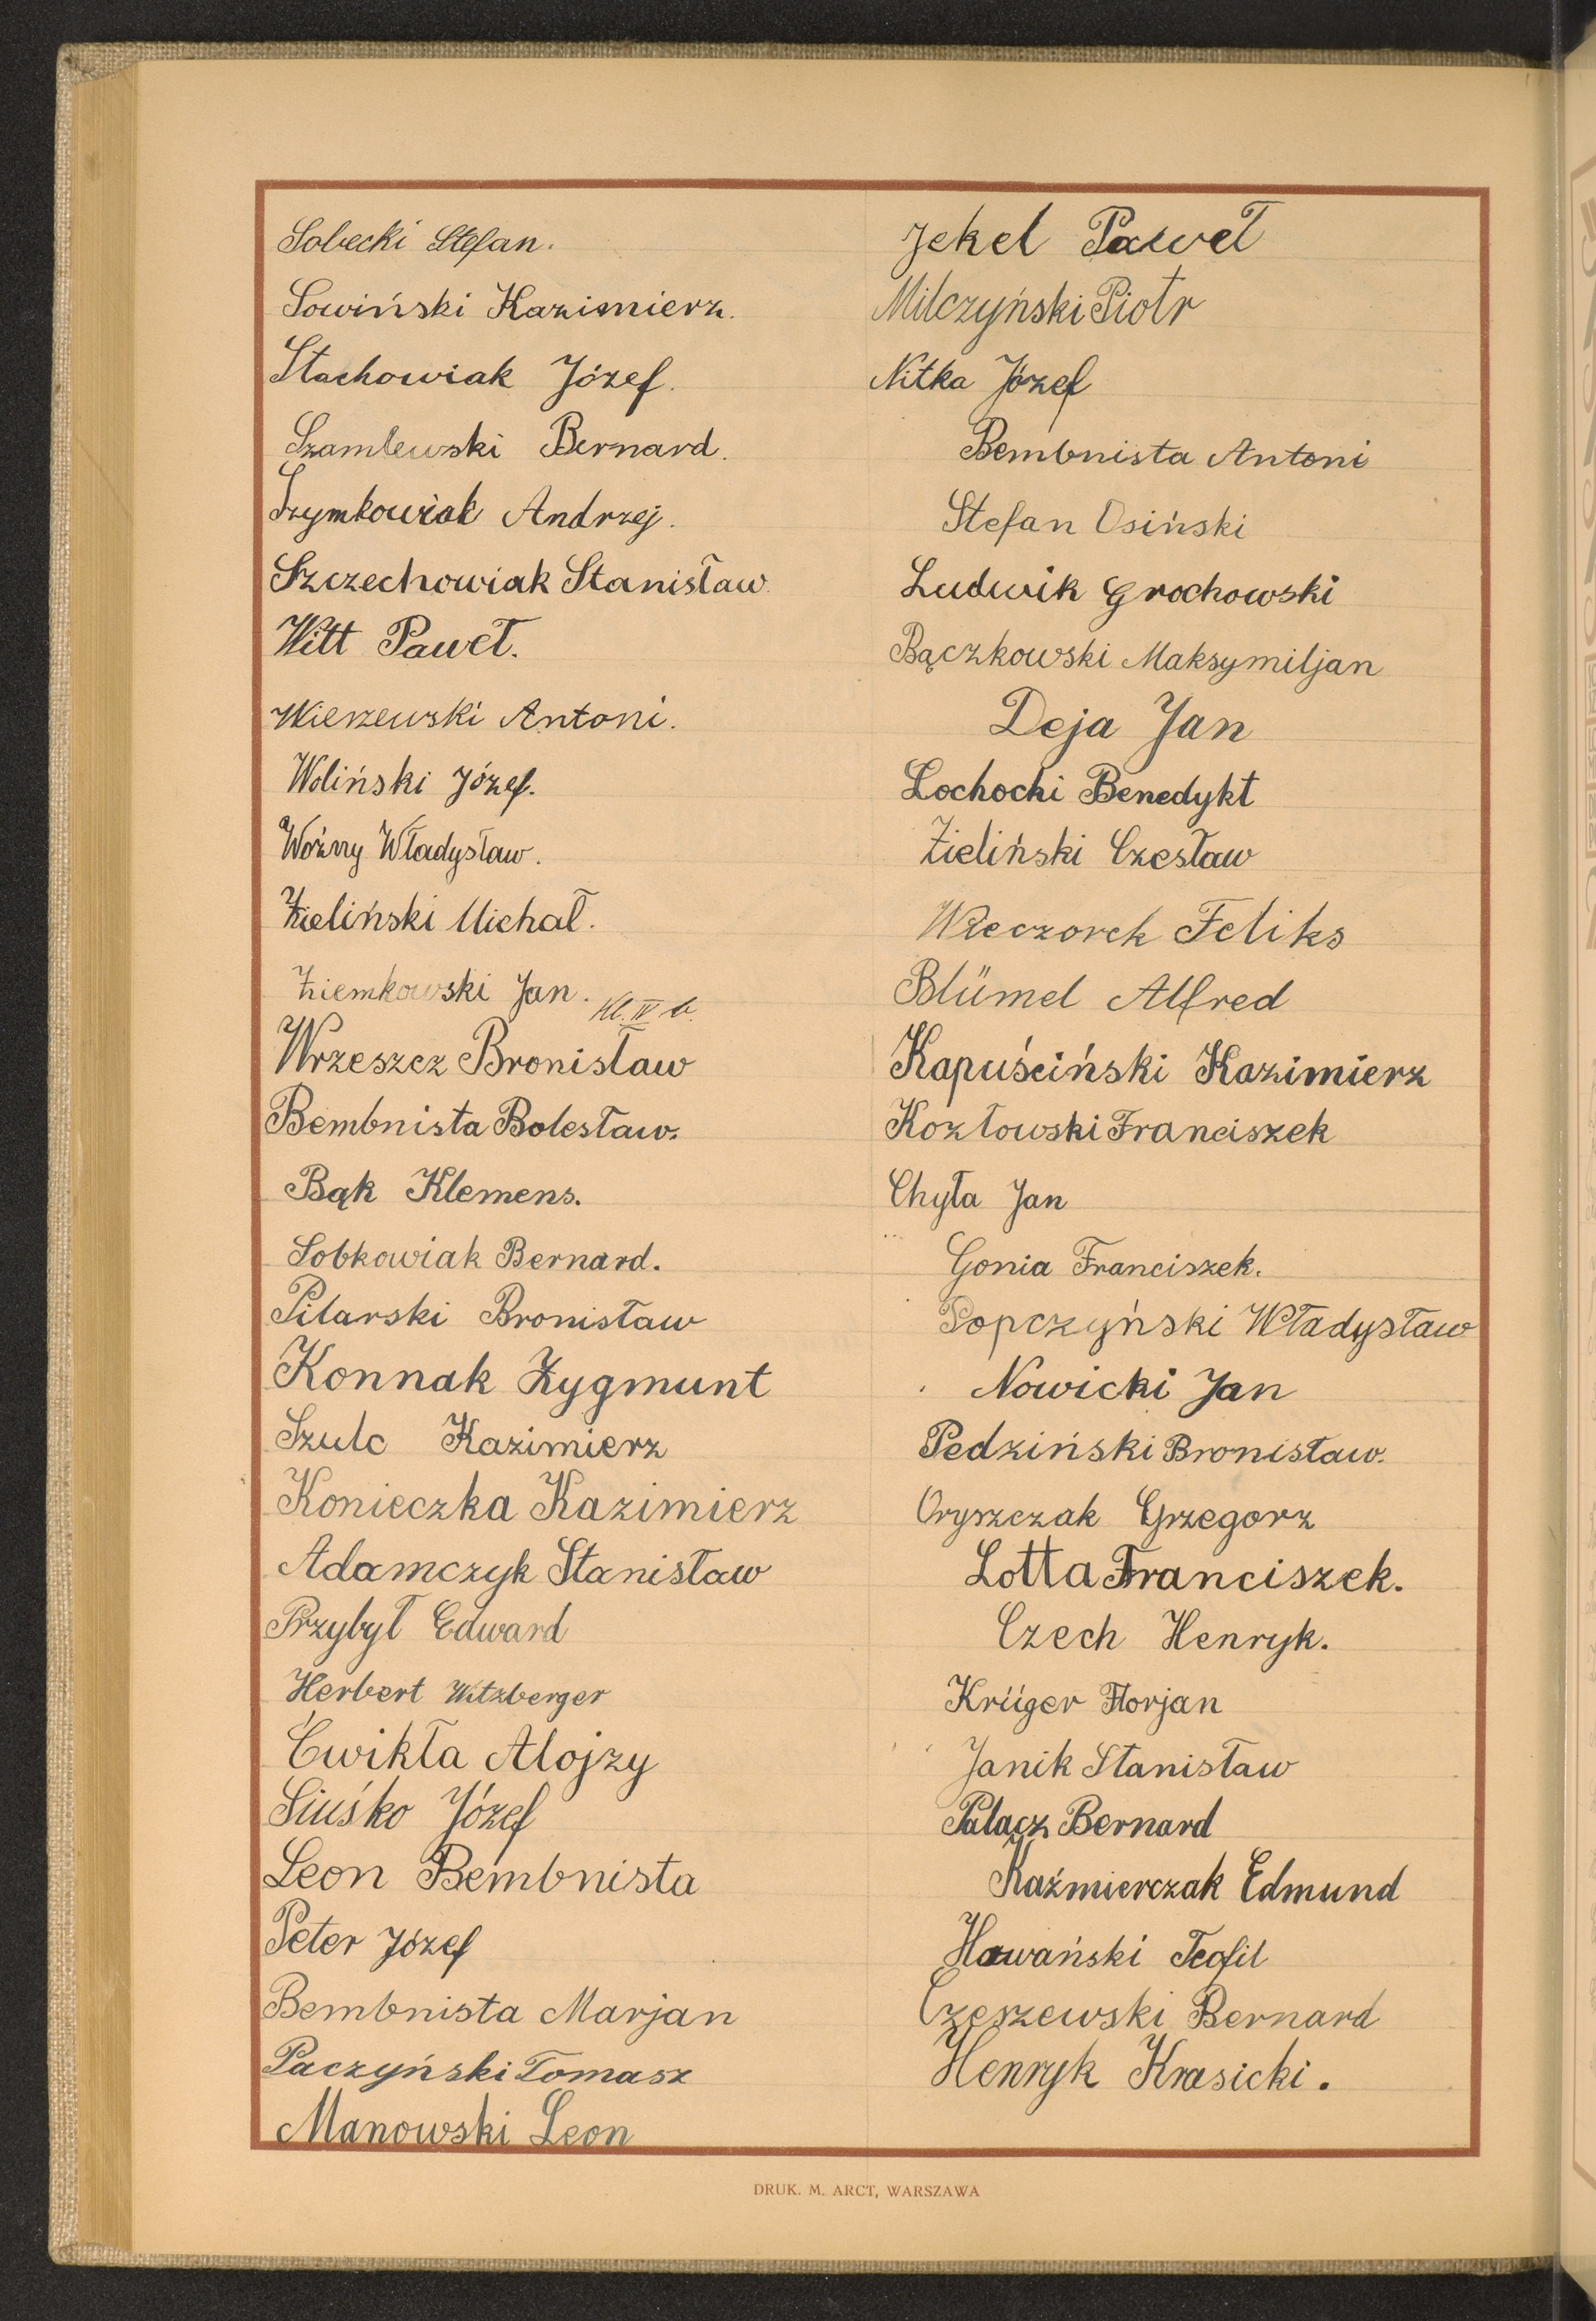 Sobecki Stefan.
Sowiński Kazimierz.
Stachowiak Józef.
Szamlewski Bernard.
Szymkowiak Andrzej.
Szczechowiak Stanisław.
Witt Paweł.
Wierzewski Antoni.
Woliński Józef.
Woźny Władysław.
Zieliński Michał.
Ziemkowski Jan.
Kl. IV b.
Wrzeszcz Bronisław
Bembnista Bolesław.
Bąk Klemens.
Sobkowiak Bernard.
Pilarski Bronisław
Konnak Zygmunt
Szulc Kazimierz
Konieczka Kazimierz
Adamczyk Stanisław
Przybył Edward
Herbert Witzberger
Ćwikła Alojzy
Siuśko Józef
Leon Bembnista
Peter Józef
Bembnista Marjan
Paczyński Tomasz
Manowski Leon
Jekel Paweł
Milczyński Piotr
Nitka Józef
Bembnista Antoni
Stefan Osiński
Ludwik Grochowski
Bączkowski Maksymiljan
Deja Jan
Lochocki Benedykt
Zieliński Czesław
Wieczorek Feliks
Blümel Alfred
Kapuściński Kazimierz
Kozłowski Franciszek
Chyła Jan
Gonia Franciszek.
Popczyński Władysław
Nowicki Jan
Pedziński Bronisław.
Oryszczak Grzegorz
Lotta Franciszek.
Czech Henryk.
Krüger Florjan
Janik Stanisław
Palacz Bernard
Kaźmierczak Edmund
Hawański Teofil
Czeszewski Bernard
Henryk Krasicki.
DRUK. M. ARCT, WARSZAWA